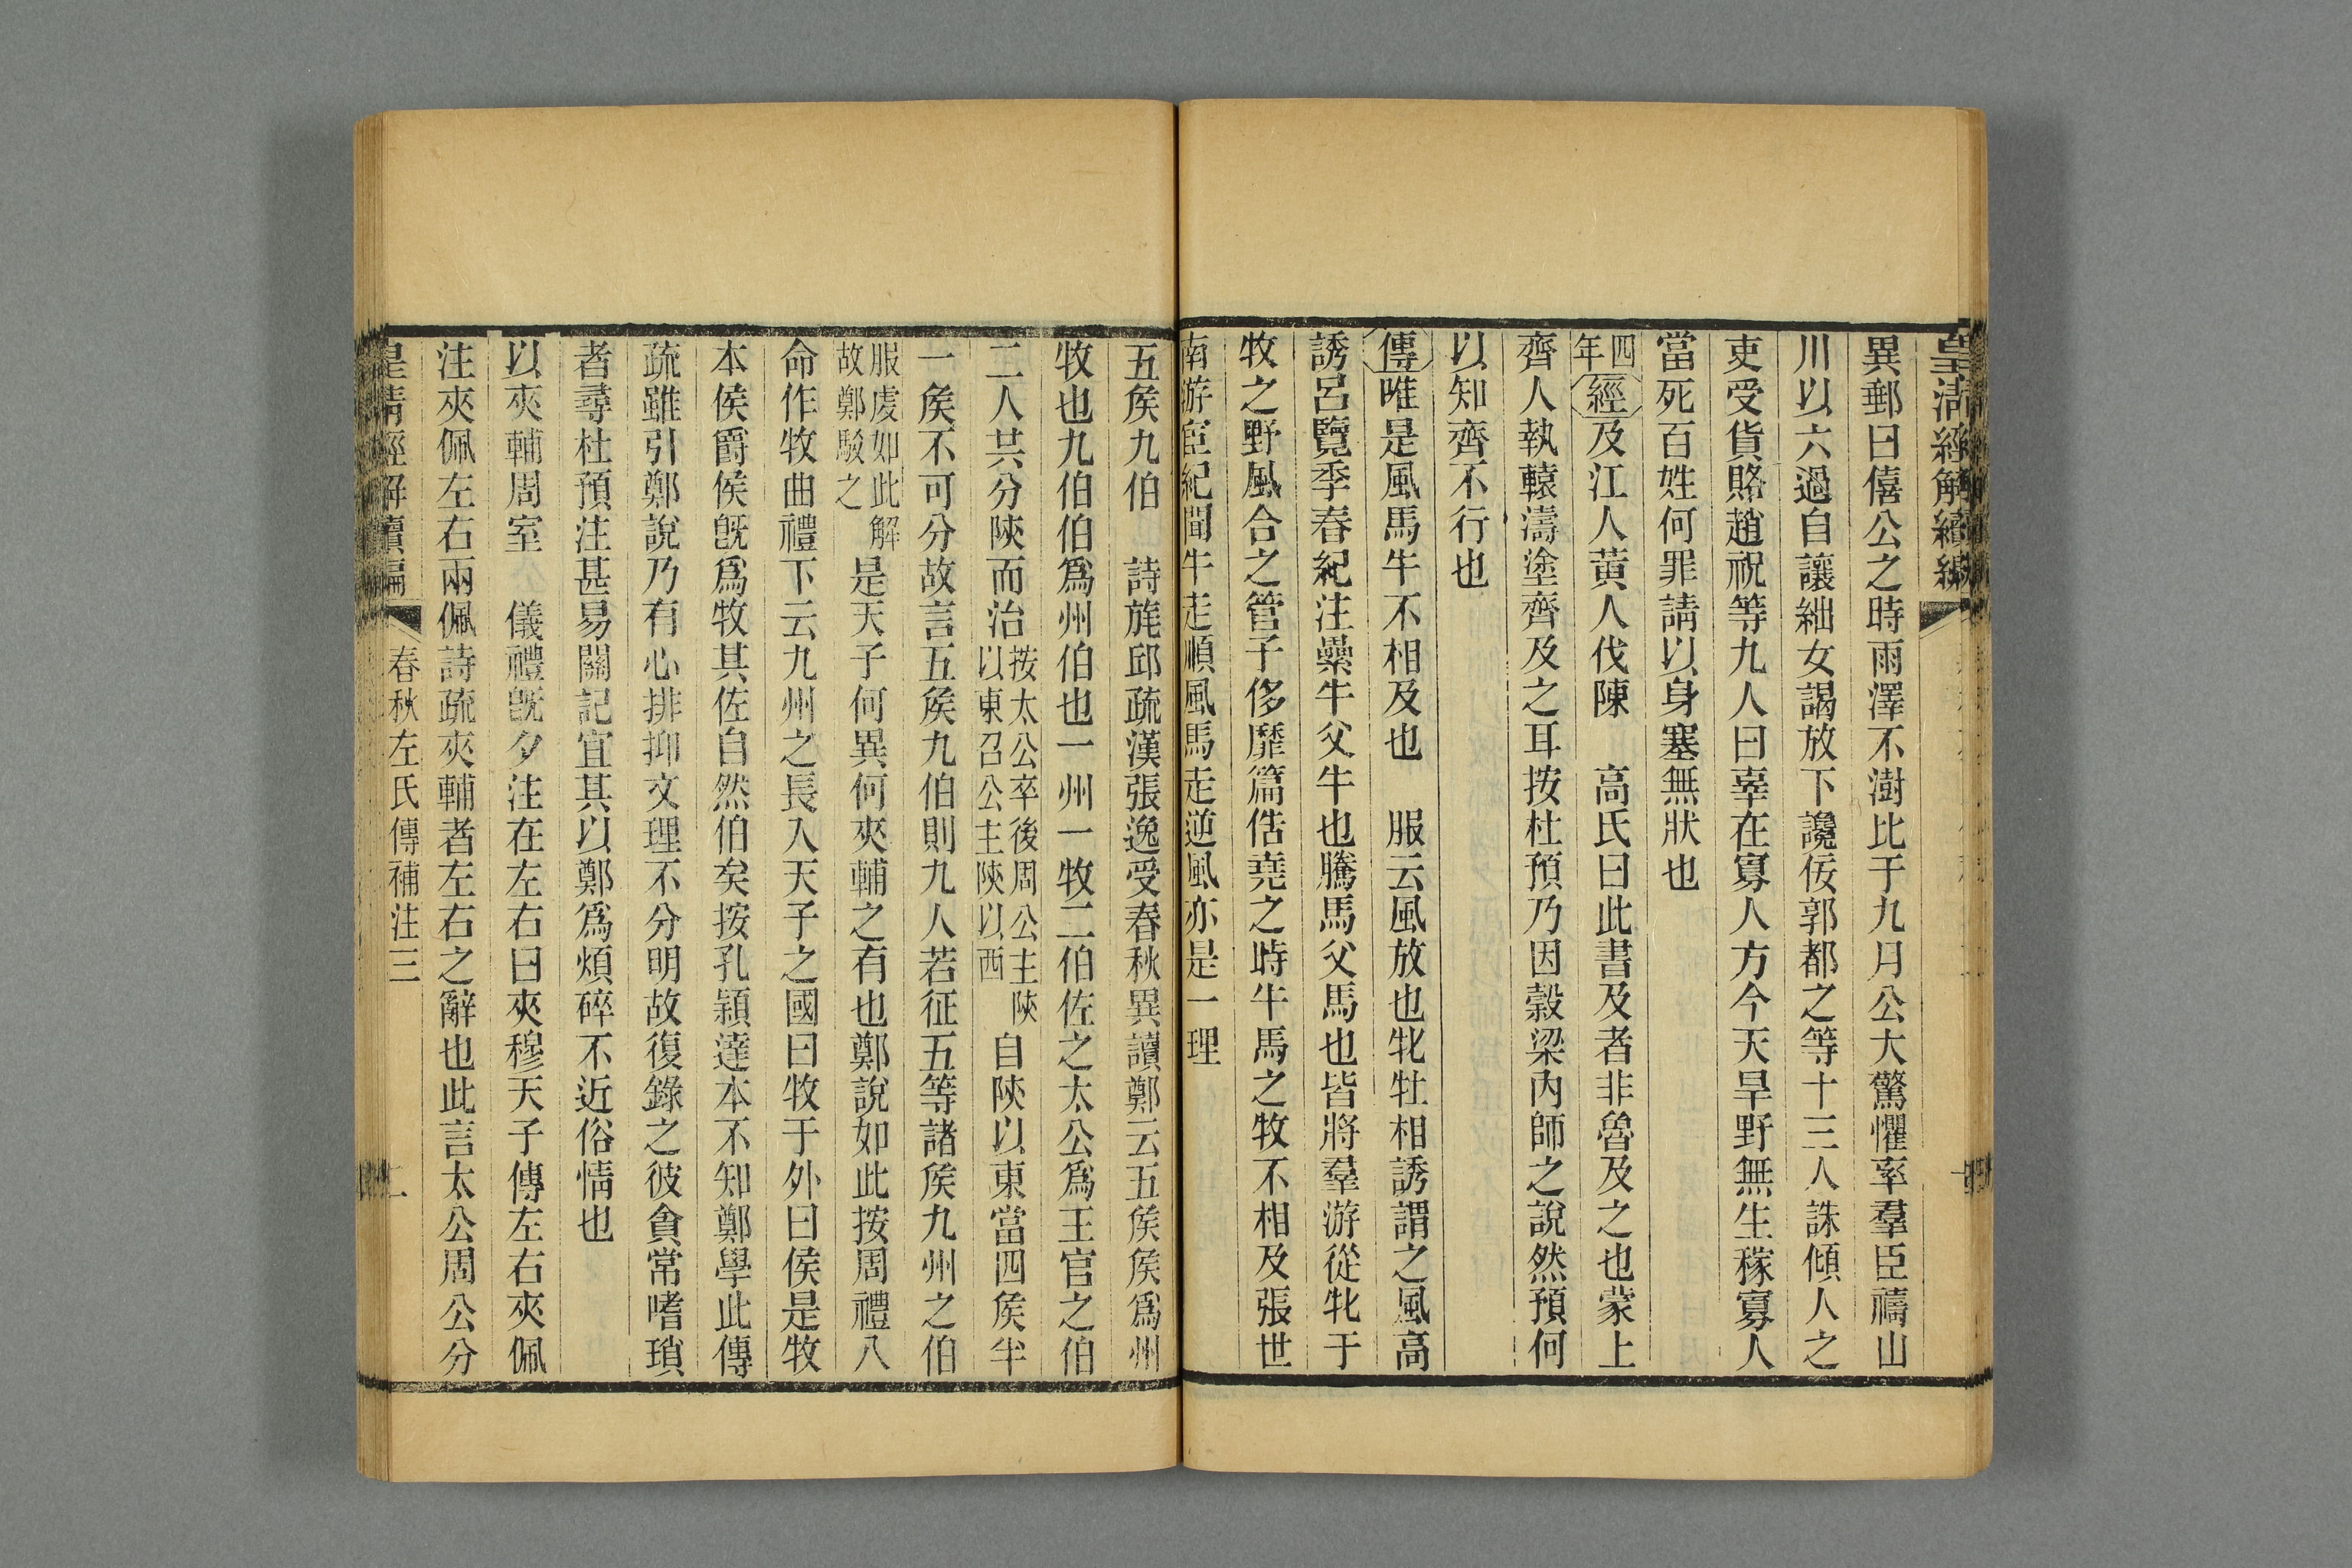 皇清經解續編
異郵曰僖公之時雨澤不澍比于九月公大驚懼率羣臣禱山
川以六過自讓絀女謁放下讒佞郭都之等十三人誅傾人之
吏受貨賂趙祝等九人曰辜在寡人方今天旱野無生稼寡人
當死百姓何罪請以身塞無狀也
四年經及江人黃人伐陳　高氏曰此書及者非魯及之也蒙上
齊人執轅濤塗齊及之耳按杜預乃因穀梁內師之說然預何
以知齊不行也
傳唯是風馬牛不相及也　服云風放也牝牡相誘謂之風高
誘呂覽季春紀注纍牛父牛也騰馬父馬也皆將羣游從牝于
牧之野風合之管子侈靡篇俈堯之時牛馬之牧不相及張世
南游宦紀聞牛走順風馬走逆風亦是一理
五矦九伯　詩旄邱疏漢張逸受春秋異讀鄭云五矦矦爲州
牧也九伯伯爲州伯也一州一牧二伯佐之太公爲王官之伯
二人共分陝而治按太公卒後周公主陝以東召公主陝以西自陝以東當四矦半
一矦不可分故言五矦九伯則九人若征五等諸矦九州之伯
服虔如此解故鄭駁之是天子何異何夾輔之有也鄭說如此按周禮八
命作牧曲禮下云九州之長入天子之國曰牧于外曰侯是牧
本侯爵侯旣爲牧其佐自然伯矣按孔穎達本不知鄭學此傳
疏雖引鄭說乃有心排抑文理不分明故復錄之彼貪常嗜瑣
者尋杜預注甚易關記宜其以鄭爲煩碎不近俗情也
以夾輔周室　儀禮旣夕注在左右曰夾穆天子傳左右夾佩
注夾佩左右兩佩詩疏夾輔者左右之辭也此言太公周公分
皇清經解續編　春秋左氏傳補注三